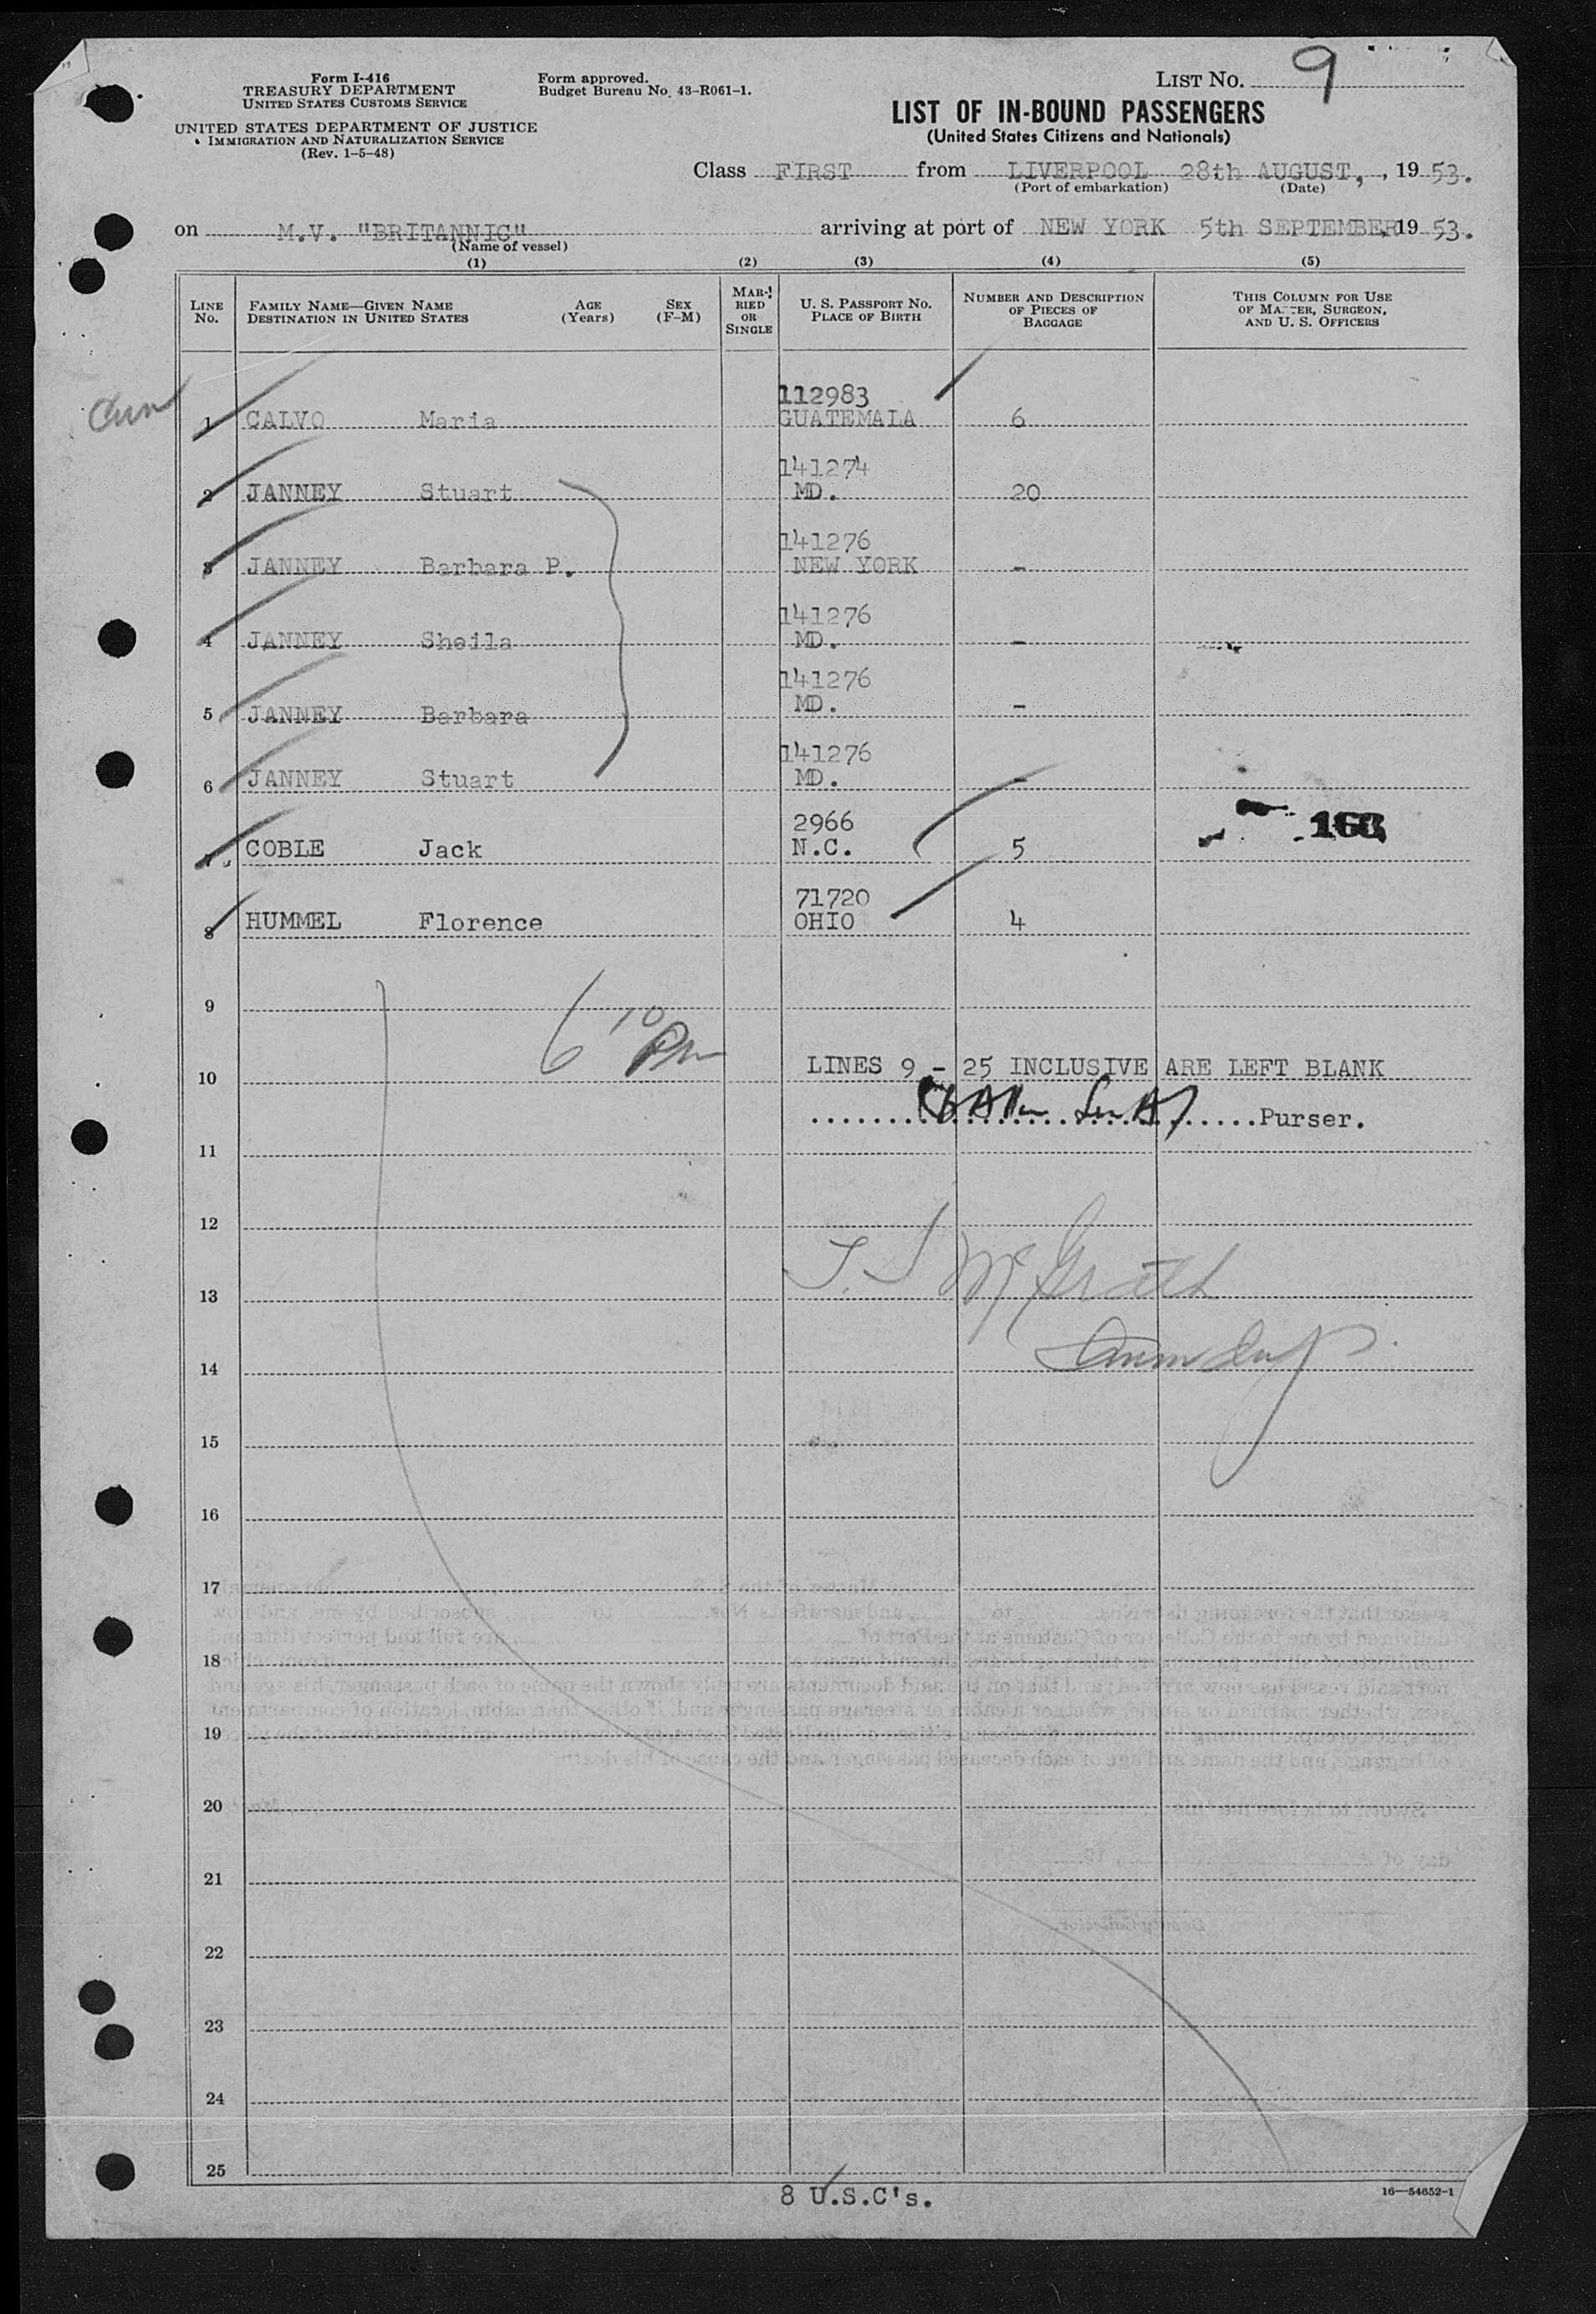 Form I-416
TREASURY DEPARTMENT
UNITED STATES CUSTOMS SERVICE
UNITED STATES DEPARTMENT OF JUSTICE
IMMIGRATION AND NATURALIZATION SERVICE
(Rev. 1-5-48)
Form approved.
Budget Bureau No. 43-R061-1.
LIST NO. 9
LIST OF IN-BOUND PASSENGERS
(United States Citizens and Nationals)
Class FIRST from LIVERPOOL 28th AUGUST, , 19 53.
(Port of embarkation) (Date)
on M.V. "BRITANNIC" arriving at port of NEW YORK 5th SEPTEMBER, 19 53.
(Name of vessel)
(1) (2) (3) (4) (5)
LINE NO.
FAMILY NAME—GIVEN NAME
DESTINATION IN UNITED STATES
AGE (Years)
SEX (F-M)
MARRIED OR SINGLE
U. S. PASSPORT NO.
PLACE OF BIRTH
NUMBER AND DESCRIPTION OF PIECES OF BAGGAGE
THIS COLUMN FOR USE OF MASTER, SURGEON, AND U. S. OFFICERS
112983
1 CALVO Maria GUATEMALA 6
141274
2 JANNEY Stuart MD. 20
141276
3 JANNEY Barbara P. NEW YORK -
141276
4 JANNEY Sheila MD. -
141276
5 JANNEY Barbara MD. -
141276
6 JANNEY Stuart MD. -
2966
7 COBLE Jack N.C. 5
71720
8 HUMMEL Florence OHIO 4
9
6 10 PM
10 LINES 9 - 25 INCLUSIVE ARE LEFT BLANK
Purser.
11
12
T. J McGrath
13
14
15
16
17
18
19
20
21
22
23
24
25
8 U.S.C's.
16—54652-1